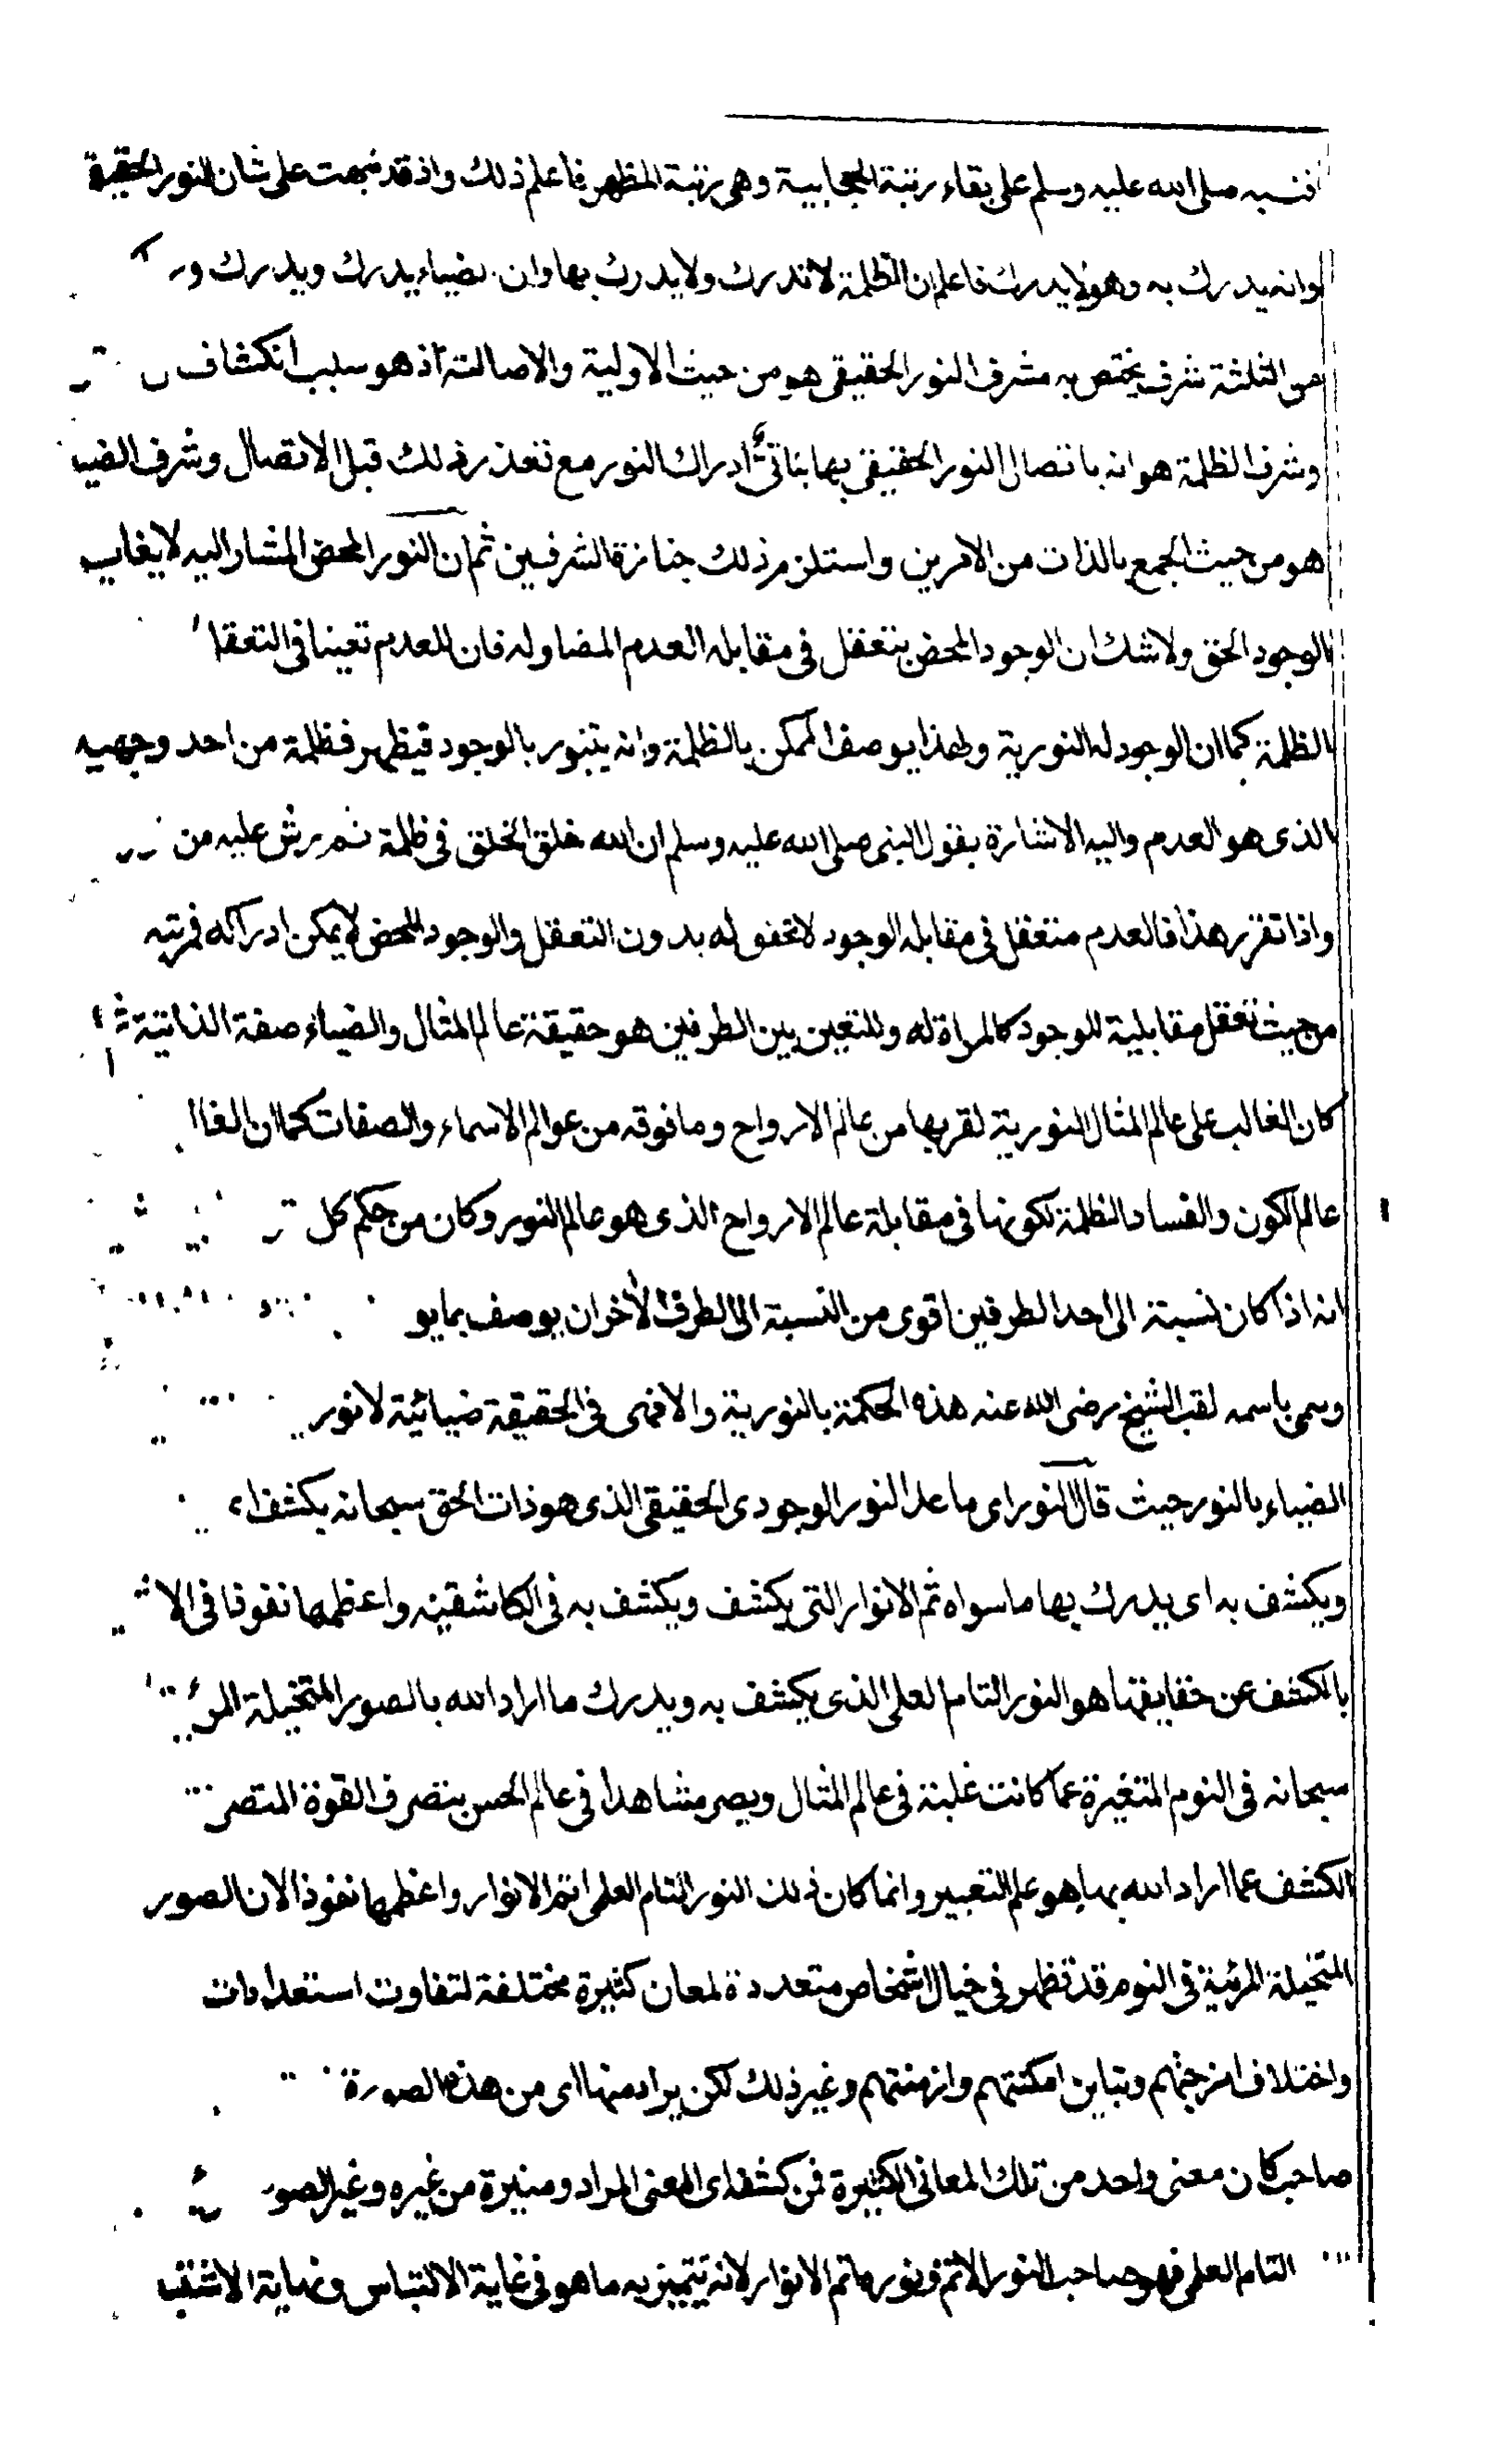 فنبه صلى الله عليه وسلم على بقاء رتبة الحجابية وهى رتبة المظهر فاعلم ذلك واذ قد نبهت على شان النور الحقيقة
وانه يدرك به وهو لا يدرك فاعلم ان الظلمة لا تدرك ولا يدرك بها وان ضياء يدرك ويدرك
من الثلثة شرف يختص به مشرف النور الحقيقى هو من حيث الاولية والاصالة اذ هو سبب انكشاف
وشرف الظلمة هو انه باتصال النور الحقيقى بها يتاتى ادراك النور مع تعذر ذلك قبل الاتصال وشرف الضيا
هو من حيث الجمع بالذات من الامرين واستلزم ذلك حيازة الشرفين ثم ان النور المحض المشار اليه لا يغاير
الوجود الحق ولا شك ان الوجود المحض يتعقل فى مقابله العدم المضاد له فان للعدم تعينا فى التعقل
الظلمة كما ان الوجود له النورية ولهذا يوصف الممكن بالظلمة وانه يتنور بالوجود فيظهر فظلمة من احد وجهيه
الذى هو العدم واليه الاشارة بقول النبى صلى الله عليه وسلم ان الله خلق الخلق فى ظلمة ثم رش عليه من
واذا تقرر هذا فالعدم متعقل فى مقابله الوجود لا تحقق له بدون التعقل والوجود المحض لا يمكن ادراكه فمرتبه
من حيث تعقل مقابلية للوجود كالمراة له وللتعين بين الطرفين هو حقيقة عالم المثال والضياء صفة الذاتية
كان الغالب على عالم المثال النورية لقربها من عالم الارواح وما فوقه من عوالم الاسماء والصفات كما ان الغا
عالم الكون والفساد الظلمة لكونها فى مقابلة عالم الارواح الذى هو عالم النور وكان من حكم كل
انه اذا كان نسبته الى احد الطرفين اقوى من النسبة الى الطرف الاخر ان يوصف بما يو
وسمى باسمه لقب الشيخ رضى الله عنه هذه الحكمة بالنورية والا فهى فى الحقيقة ضيائية لا نور
الضياء بالنور حيث قال النور اى ما عدا النور الوجودى الحقيقى الذى هو ذات الحق سبحانه يكشف
ويكشف به اى يدرك بها ما سواه ثم الانوار التى يكشف ويكشف به فى الكاشفيه واعظمها نفوذا فى الا
بالكشف عن حقايقها هو النور التام العلى الذى يكشف به ويدرك ما اراد الله بالصور المتخيلة المر
سبحانه فى النوم المتغيرة عما كانت عليه فى عالم المثال ويصير مشاهدا فى عالم الحس بتصرف القوة المتصر
الكشف عما اراد الله بها هو علم التعبير وانما كان ذلك النور التام العلى اتم الانوار واعظمها نفوذا لان الصور
المتخيلة المرئية فى النوم قد تظهر فى خيال اشخاص متعددة لمعان كثيرة مختلفة لتفاوت استعدادات
واختلاف امزجتهم وتباين امكنتهم وازمنتهم وغير ذلك لكن يراد منها اى من هذه الصورة
صاحب كان معنى واحد من تلك المعانى الكثيرة فمن كشفه اى المعنى المراد ومنيرة من غيره وغير الصور
التام العلى فهو صاحب النور الاتم ونوره اتم الانوار لانه يتميز به ما هو فى غاية الالتباس ونهاية الاشتبـ